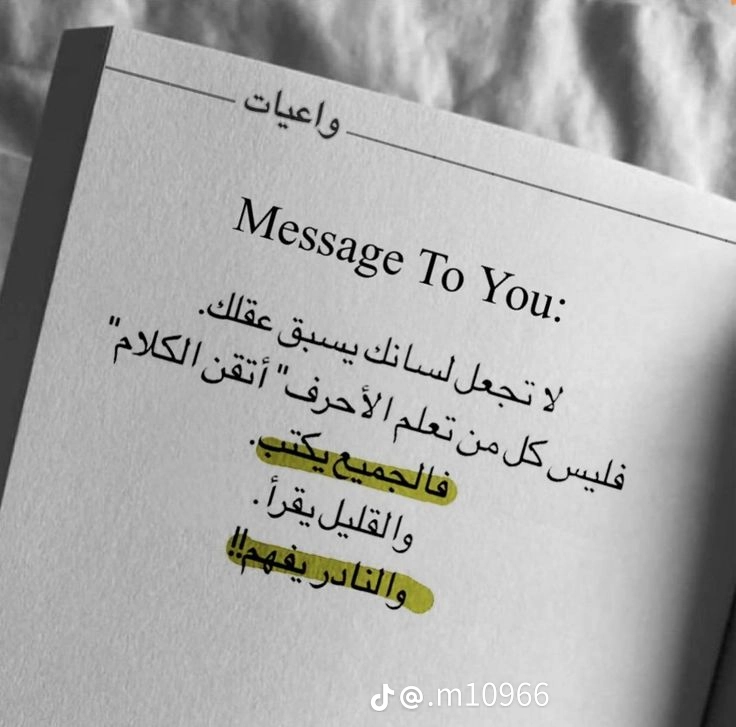 واعيات
Message To You:
لا تجعل لسانك يسبق عقلك.
فليس كل من تعلم الأحرف" أتقن الكلام"
فالجميع يكتب.
والقليل يقرأ.
والنادر يفهم!!
@.m10966